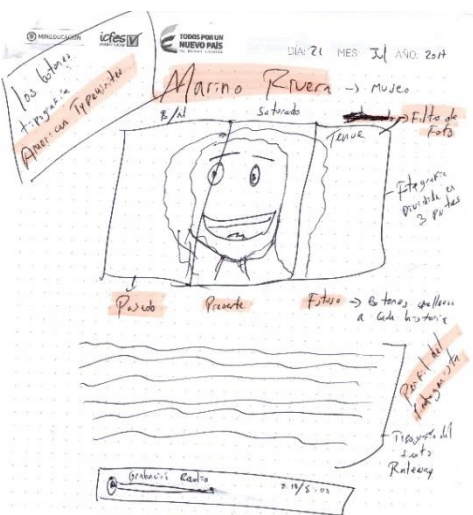 MINEDUCACIÓN
icfes
TODOS POR UN
NUEVO PAÍS
DÍA: 21 MES: Jul AÑO: 2017
los botones
tipografía
American Typewriter
Marino Rivera → Museo
B/N Saturado Tenue
→ Filtro de
Foto
Fotografía
Dividida en
3 partes
Pasado Presente Futuro → Botones
a cada historia
Perfil del
Protagonista
Tipografía del
texto
Raleway
Grabación Radio